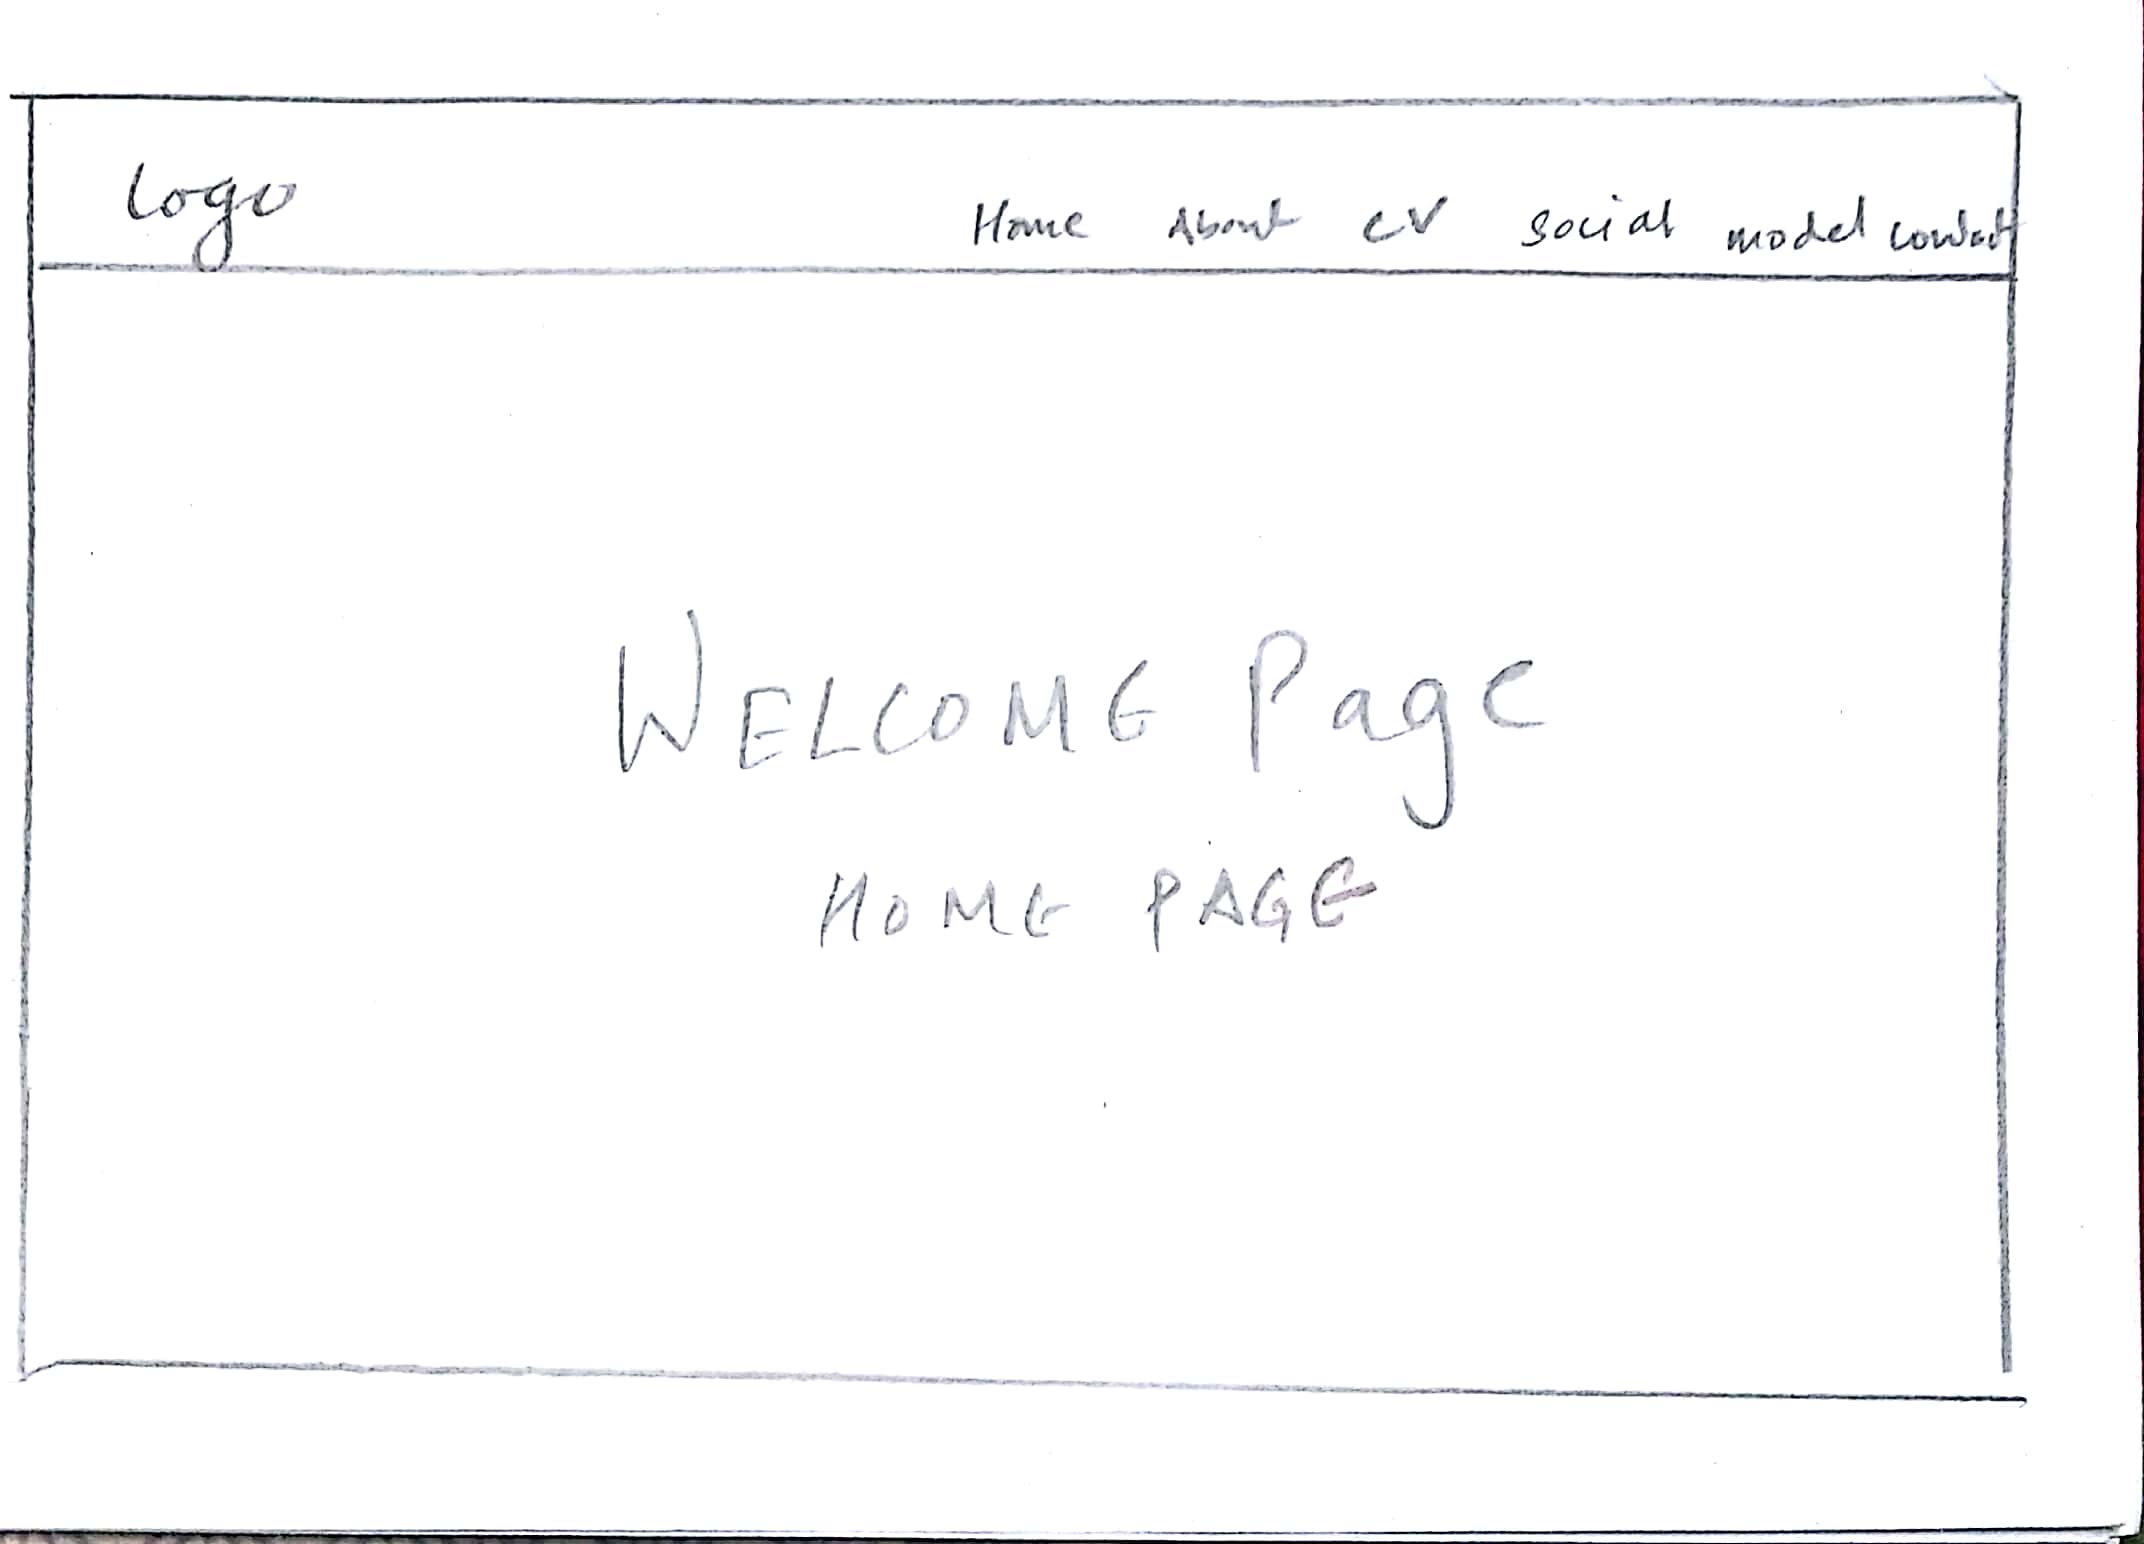 Logo
Home About CV Social model contact
WELCOME Page
HOME PAGE